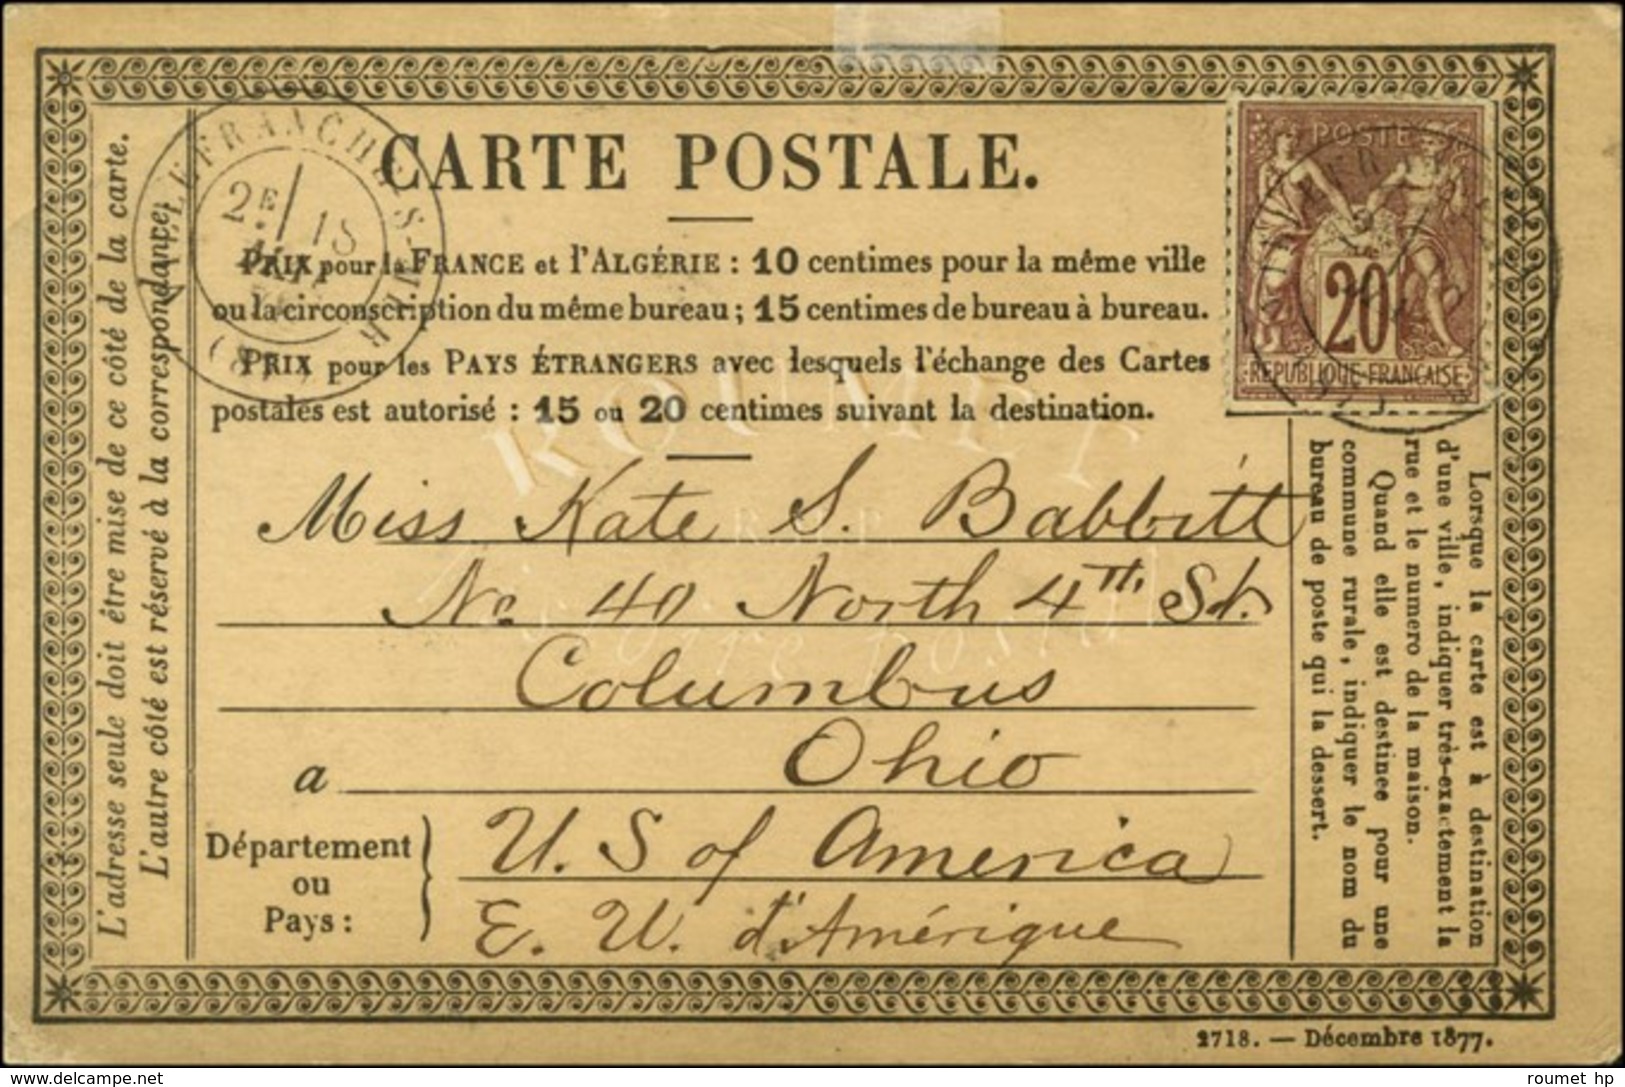 CARTE POSTALE.
PRIX pour la FRANCE et l'ALGÉRIE : 10 centimes pour la même ville
ou la circonscription du même bureau ; 15 centimes de bureau à bureau.
PRIX pour les PAYS ÉTRANGERS avec lesquels l'échange des Cartes
postales est autorisé : 15 ou 20 centimes suivant la destination.
Miss Kate S. Babbitt
No. 40 North 4th. St.
Columbus
a Ohio
Département
ou
Pays :
U. S of America
E. U. d'Amérique
L'adresse seule doit être mise de ce côté de la carte.
L'autre côté est réservé à la correspondance.
Lorsque la carte est à destination
d'une ville, indiquer très-exactement la
rue et le numero de la maison.
Quand elle est destinee pour une
commune rurale, indiquer le nom du
bureau de poste qui la dessert.
POSTE
20
REPUBLIQUE FRANÇAISE
LEFRANCHE-S-MER
2E / 15
(87)
ROUMET
histoire postale
2718. — Décembre 1877.
roumet hp